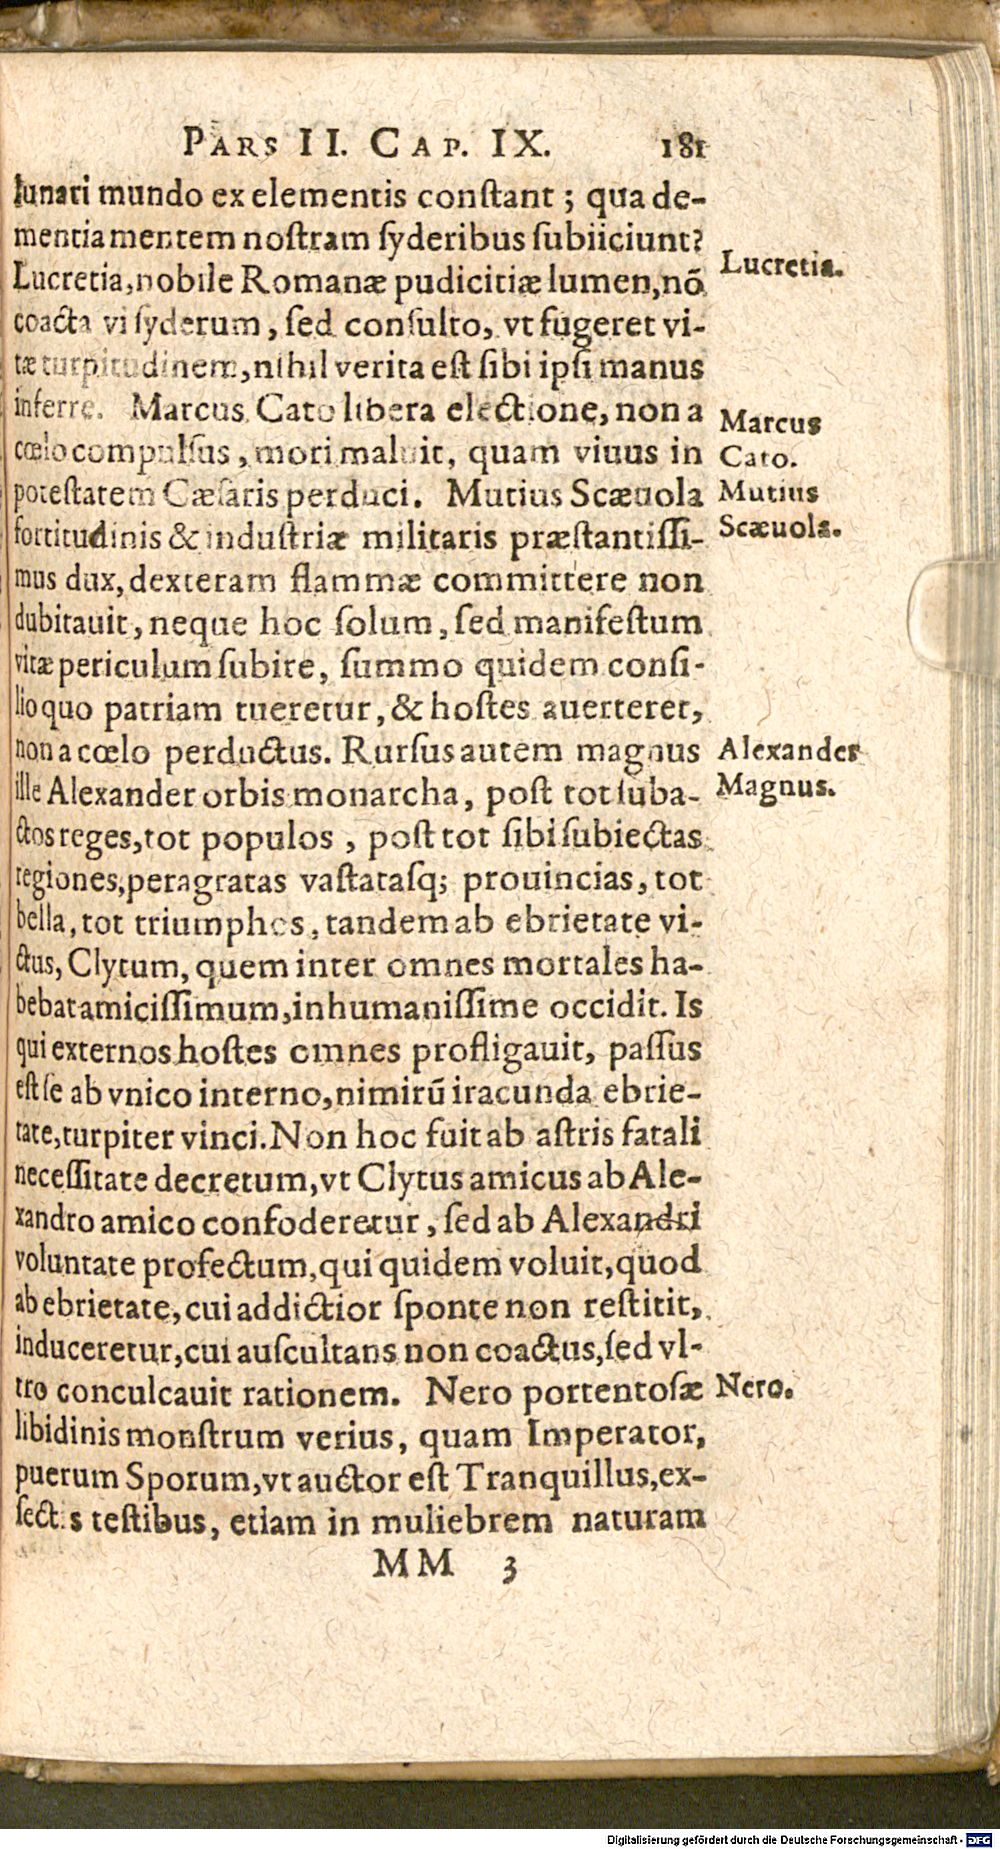 PARS II. CAP. IX. 181
lunari mundo ex elementis conſtant ; qua de-
mentia mentem noſtram ſyderibus ſubiiciunt?
Lucretia, nobile Romanæ pudicitiæ lumen, nō
coacta vi ſyderum, ſed conſulto, vt fugeret vi-
tæ turpitudinem, nihil verita eſt ſibi ipſi manus
inferre. Marcus Cato libera electione, non a
cœlo compulſus, mori maluit, quam viuus in
poteſtatem Cæſaris perduci. Mutius Scæuola
fortitudinis & induſtriæ militaris præſtantiſſi-
mus dux, dexteram flammæ committere non
dubitauit, neque hoc ſolum, ſed manifeſtum
vitæ periculum ſubire, ſummo quidem conſi-
lio quo patriam tueretur, & hoſtes auerteret,
non a cœlo perductus. Rurſus autem magnus
ille Alexander orbis monarcha, poſt tot ſuba-
ctos reges, tot populos , poſt tot ſibi ſubiectas
regiones, peragratas vaſtatasq; prouincias, tot
bella, tot triumphos, tandem ab ebrietate vi-
ctus, Clytum, quem inter omnes mortales ha-
bebat amiciſſimum, inhumaniſſime occidit. Is
qui externos hoſtes omnes profligauit, paſſus
eſt ſe ab vnico interno, nimirū iracunda ebrie-
tate, turpiter vinci. Non hoc fuit ab aſtris fatali
neceſſitate decretum, vt Clytus amicus ab Ale-
xandro amico confoderetur, ſed ab Alexandri
voluntate profectum, qui quidem voluit, quod
ab ebrietate, cui addictior ſponte non reſtitit,
induceretur, cui auſcultans non coactus, ſed vl-
tro conculcauit rationem. Nero portentoſæ
libidinis monſtrum verius, quam Imperator,
puerum Sporum, vt auctor eſt Tranquillus, ex-
ſectis teſtibus, etiam in muliebrem naturam
MM 3
Lucretia.
Marcus
Cato.
Mutius
Scæuola.
Alexander
Magnus.
Nero.
Digitalisierung gefördert durch die Deutsche Forschungsgemeinschaft - DFG